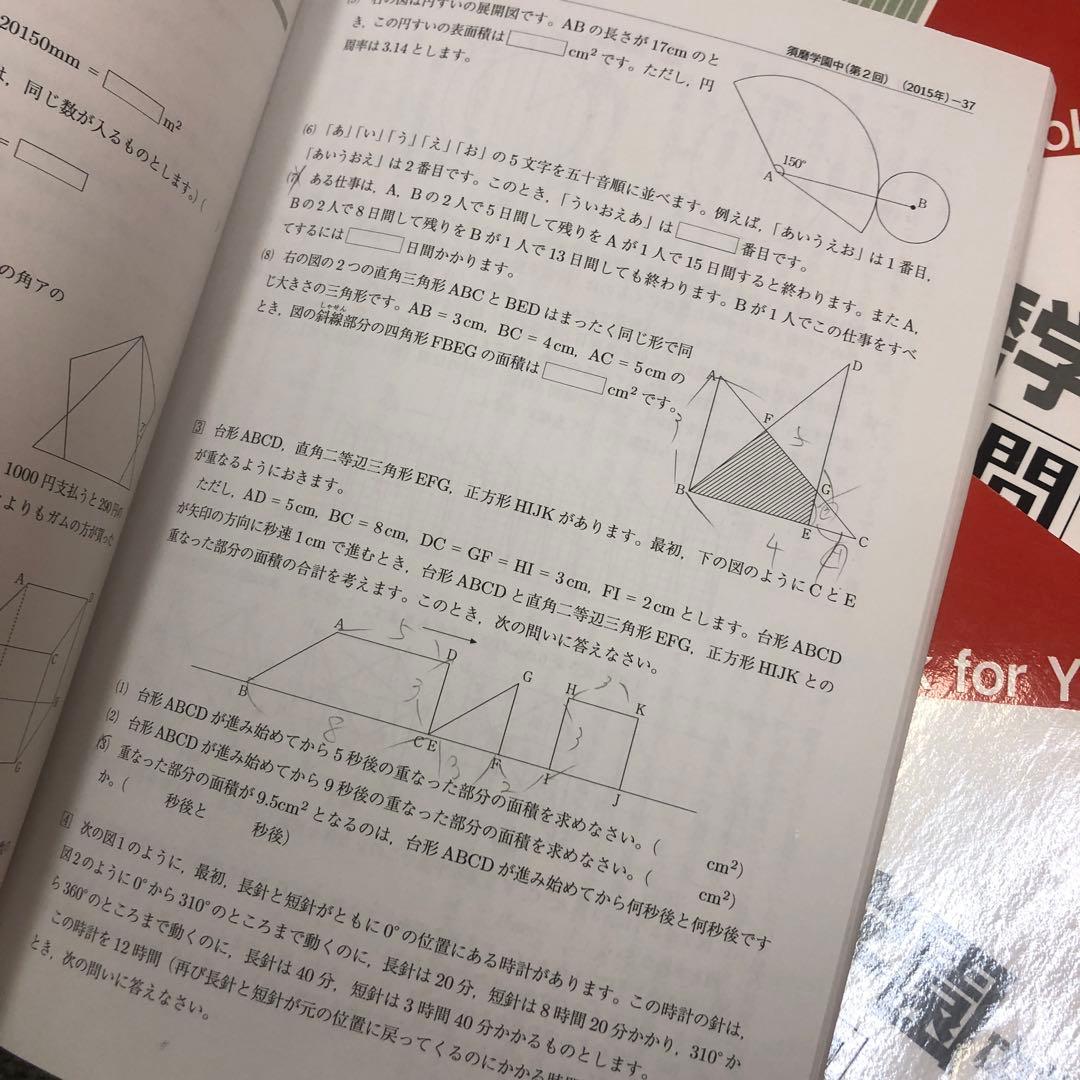 20150mm =
m²
は，同じ数が入るものとします。)(
=
の角アの
1000円支払うと290円の
よりもガムの方が買った
須磨学園中(第2回) (2015年)−37
(5) 右の図は円すいの展開図です。ABの長さが17cmのと
き，この円すいの表面積は cm²です。ただし，円
周率は3.14とします。
150°
A
B
(6) 「あ」「い」「う」「え」「お」の5文字を五十音順に並べます。例えば，「あいうえお」は1番目，
「あいうおえ」は2番目です。このとき，「ういおえあ」は 番目です。
(7) ある仕事は，A，Bの2人で5日間して残りをAが1人で15日間すると終わります。またA，
Bの2人で8日間して残りをBが1人で13日間しても終わります。Bが1人でこの仕事をすべ
てするには 日間かかります。
(8) 右の図の2つの直角三角形ABCとBEDはまったく同じ形で同
じ大きさの三角形です。AB = 3cm，BC = 4cm，AC = 5cmの
しゃせん
とき，図の斜線部分の四角形FBEGの面積は cm²です。
A
D
F
B
G
E
C
3
5
4
3 台形ABCD，直角二等辺三角形EFG，正方形HIJKがあります。最初，下の図のようにCとE
が重なるようにおきます。
ただし，AD = 5cm，BC = 8cm，DC = GF = HI = 3cm，FI = 2cmとします。台形ABCD
が矢印の方向に秒速1cmで進むとき，台形ABCDと直角二等辺三角形EFG，正方形HIJKとの
重なった部分の面積の合計を考えます。このとき，次の問いに答えなさい。
A
5
D
B
3
8
C E
G
3
F
2
H
3
K
3
I
J
(1) 台形ABCDが進み始めてから5秒後の重なった部分の面積を求めなさい。( cm²)
(2) 台形ABCDが進み始めてから9秒後の重なった部分の面積を求めなさい。( cm²)
(3) 重なった部分の面積が9.5cm²となるのは，台形ABCDが進み始めてから何秒後と何秒後です
か。( 秒後と 秒後)
4 次の図1のように，最初，長針と短針がともに0°の位置にある時計があります。この時計の針は，
図2のように0°から310°のところまで動くのに，長針は20分，短針は8時間20分かかり，310°か
ら360°のところまで動くのに，長針は40分，短針は3時間40分かかるものとします。
この時計を12時間（再び長針と短針が元の位置に戻ってくるのにかかる時間
とき，次の問いに答えなさい。
A
C
G
磨学
問
k for Y